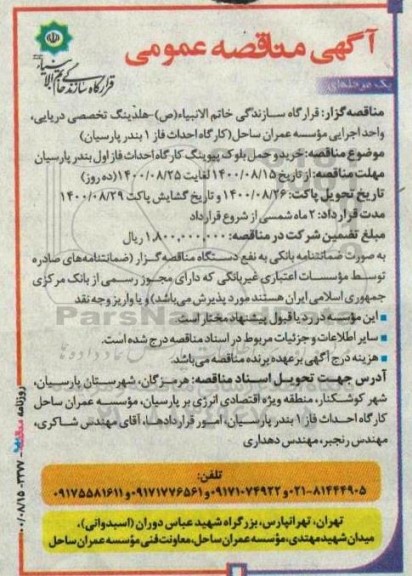 آگهی مناقصه عمومی
یک مرحله‌ای
قرارگاه سازندگی خاتم الانبیاء
مناقصه‌گزار: قرارگاه سازندگی خاتم الانبیاء(ص)-هلدینگ تخصصی دریایی،
واحد اجرایی مؤسسه عمران ساحل(کارگاه احداث فاز ۱ بندر پارسیان)
موضوع مناقصه: خرید و حمل بلوک پیوینگ کارگاه احداث فاز اول بندر پارسیان
مهلت مناقصه: از تاریخ ۱۴۰۰/۰۸/۱۵ لغایت ۱۴۰۰/۰۸/۲۵(ده روز)
تاریخ تحویل پاکت: ۱۴۰۰/۰۸/۲۶ و تاریخ گشایش پاکت ۱۴۰۰/۰۸/۲۹
مدت قرارداد: ۲ ماه شمسی از شروع قرارداد
مبلغ تضمین شرکت در مناقصه: ۱,۸۰۰,۰۰۰,۰۰۰ ریال
به صورت ضمانتنامه بانکی به نفع دستگاه مناقصه گزار (ضمانتنامه‌های صادره
توسط مؤسسات اعتباری غیربانکی که دارای مجوز رسمی از بانک مرکزی
جمهوری اسلامی ایران هستند مورد پذیرش می‌باشد) و یا واریز وجه نقد
▪ این مؤسسه در رد یا قبول پیشنهاد مختار است.
▪ سایر اطلاعات و جزئیات مربوط در اسناد مناقصه درج شده است.
▪ هزینه درج آگهی برعهده برنده مناقصه می‌باشد.
آدرس جهت تحویل اسناد مناقصه: هرمزگان، شهرستان پارسیان،
شهر کوشکنار، منطقه ویژه اقتصادی انرژی بر پارسیان، مؤسسه عمران ساحل
کارگاه احداث فاز ۱ بندر پارسیان، امور قراردادها، آقای مهندس شاکری،
مهندس رنجبر، مهندس دهداری
تلفن:
۰۲۱-۸۱۴۴۴۹۰۵ و ۰۹۱۷۱۰۷۴۹۲۲ و ۰۹۱۷۱۷۷۶۵۶۱ و ۰۹۱۷۵۵۸۱۶۱۱
تهران، تهرانپارس، بزرگراه شهید عباس دوران (اسبدوانی)،
میدان شهید مهندی، مؤسسه عمران ساحل، معاونت فنی مؤسسه عمران ساحل
روزنامه مناقصه - ۳۲۷۷ - ۰۰/۰۸/۱۵